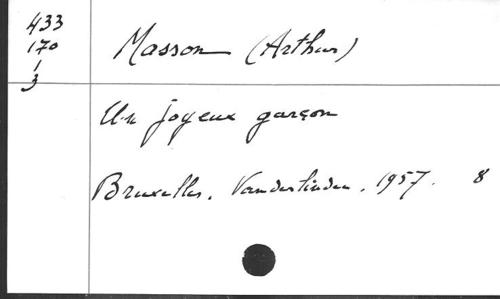 433
170
1
3
Masson (Arthur)
Un joyeux garçon
Bruxelles. Vanderlinden. 1957. 8